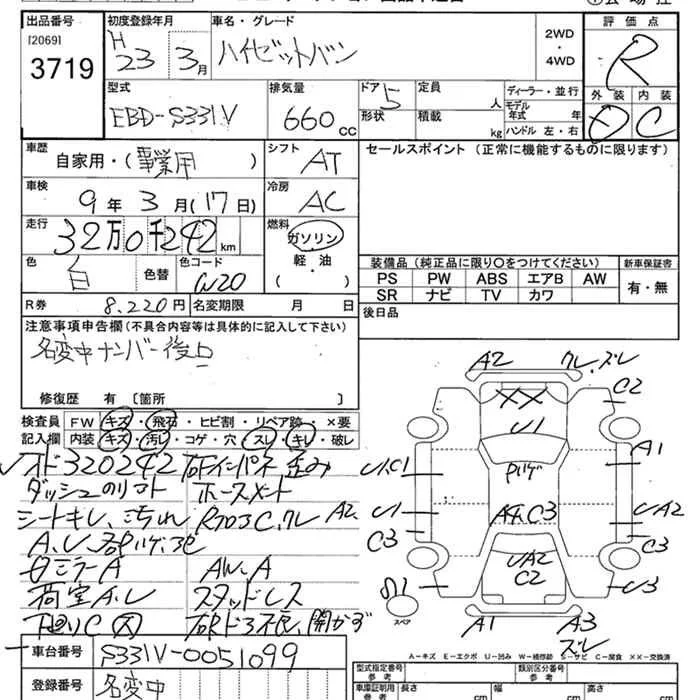 出品番号 初度登録年月 車名・グレード 評価点
[2069] H
3719 23 3月 ハイゼットバン 2WD・4WD R
型式 排気量 ドア 定員 ディーラー・並行 外装 内装
EBD-S331V 660cc 5 人 モデル年式 年 D C
形状 積載 kg ハンドル 左・右
車歴 自家用・(事業用) シフト AT セールスポイント (正常に機能するものに限ります)
車検 9年3月(17日) 冷房 AC
走行 32万0千242km 燃料 ガソリン・軽油・( )
色 白 色替 色コード W20
装備品 (純正品に限り○をつけてください) 新車保証書
PS PW ABS エアB AW 有・無
SR ナビ TV カワ
R券 8.220円 名変期限 月 日 後日品
注意事項申告欄 (不具合内容等は具体的に記入して下さい)
名変中ナンバー後日
修復歴 有 〔箇所 〕
検査員 FW キズ・飛石・ヒビ割・リペア跡・×要
記入欄 内装 キズ・汚レ・コゲ・穴・スレ・キレ・破レ
320242 インパネ歪み
ダッシュ
シートキレ、汚れ フロアC、クレ A2
ミラーA AW、A
荷室A、レ スタッドレス
下廻りC 不良、開かず
A2 クレ、ズレ
C2
XX
U1
A1
U1.C1
U1
UA2
C3
C3
UA2
C2
U3
A1 A3
ズレ
スペア
A=キズ E=エクボ U=凹み W=補修跡 S=サビ C=腐食 XX=交換済
車台番号 S331V-0051099
登録番号 名変中
型式指定番号 参考 類別区分番号 参考
車庫証明用 参考 長さ cm 幅 cm 高さ cm